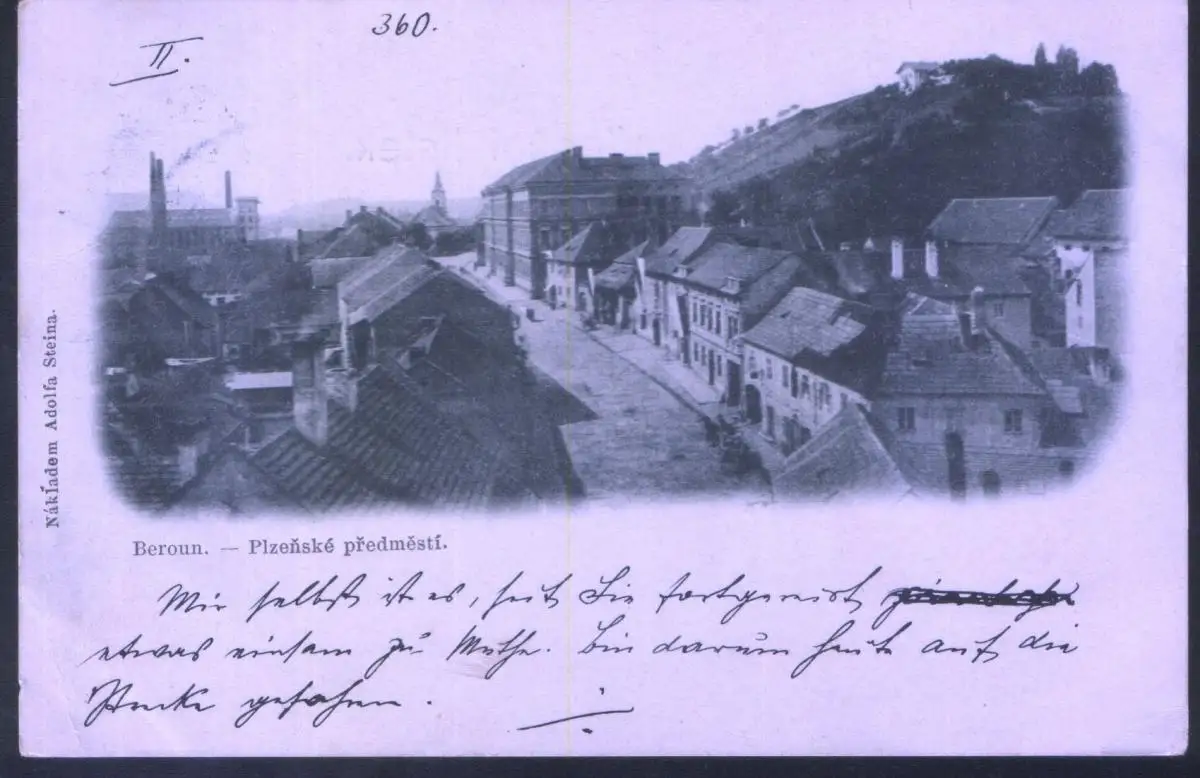 360.
II.
Nákladem Adolfa Steina.
Beroun. — Plzeňské předměstí.
Mir selbst ist es, seit Sie fortgereist
etwas einsam zu Muthe. Bin darum heute auf die
Strecke gefahren.